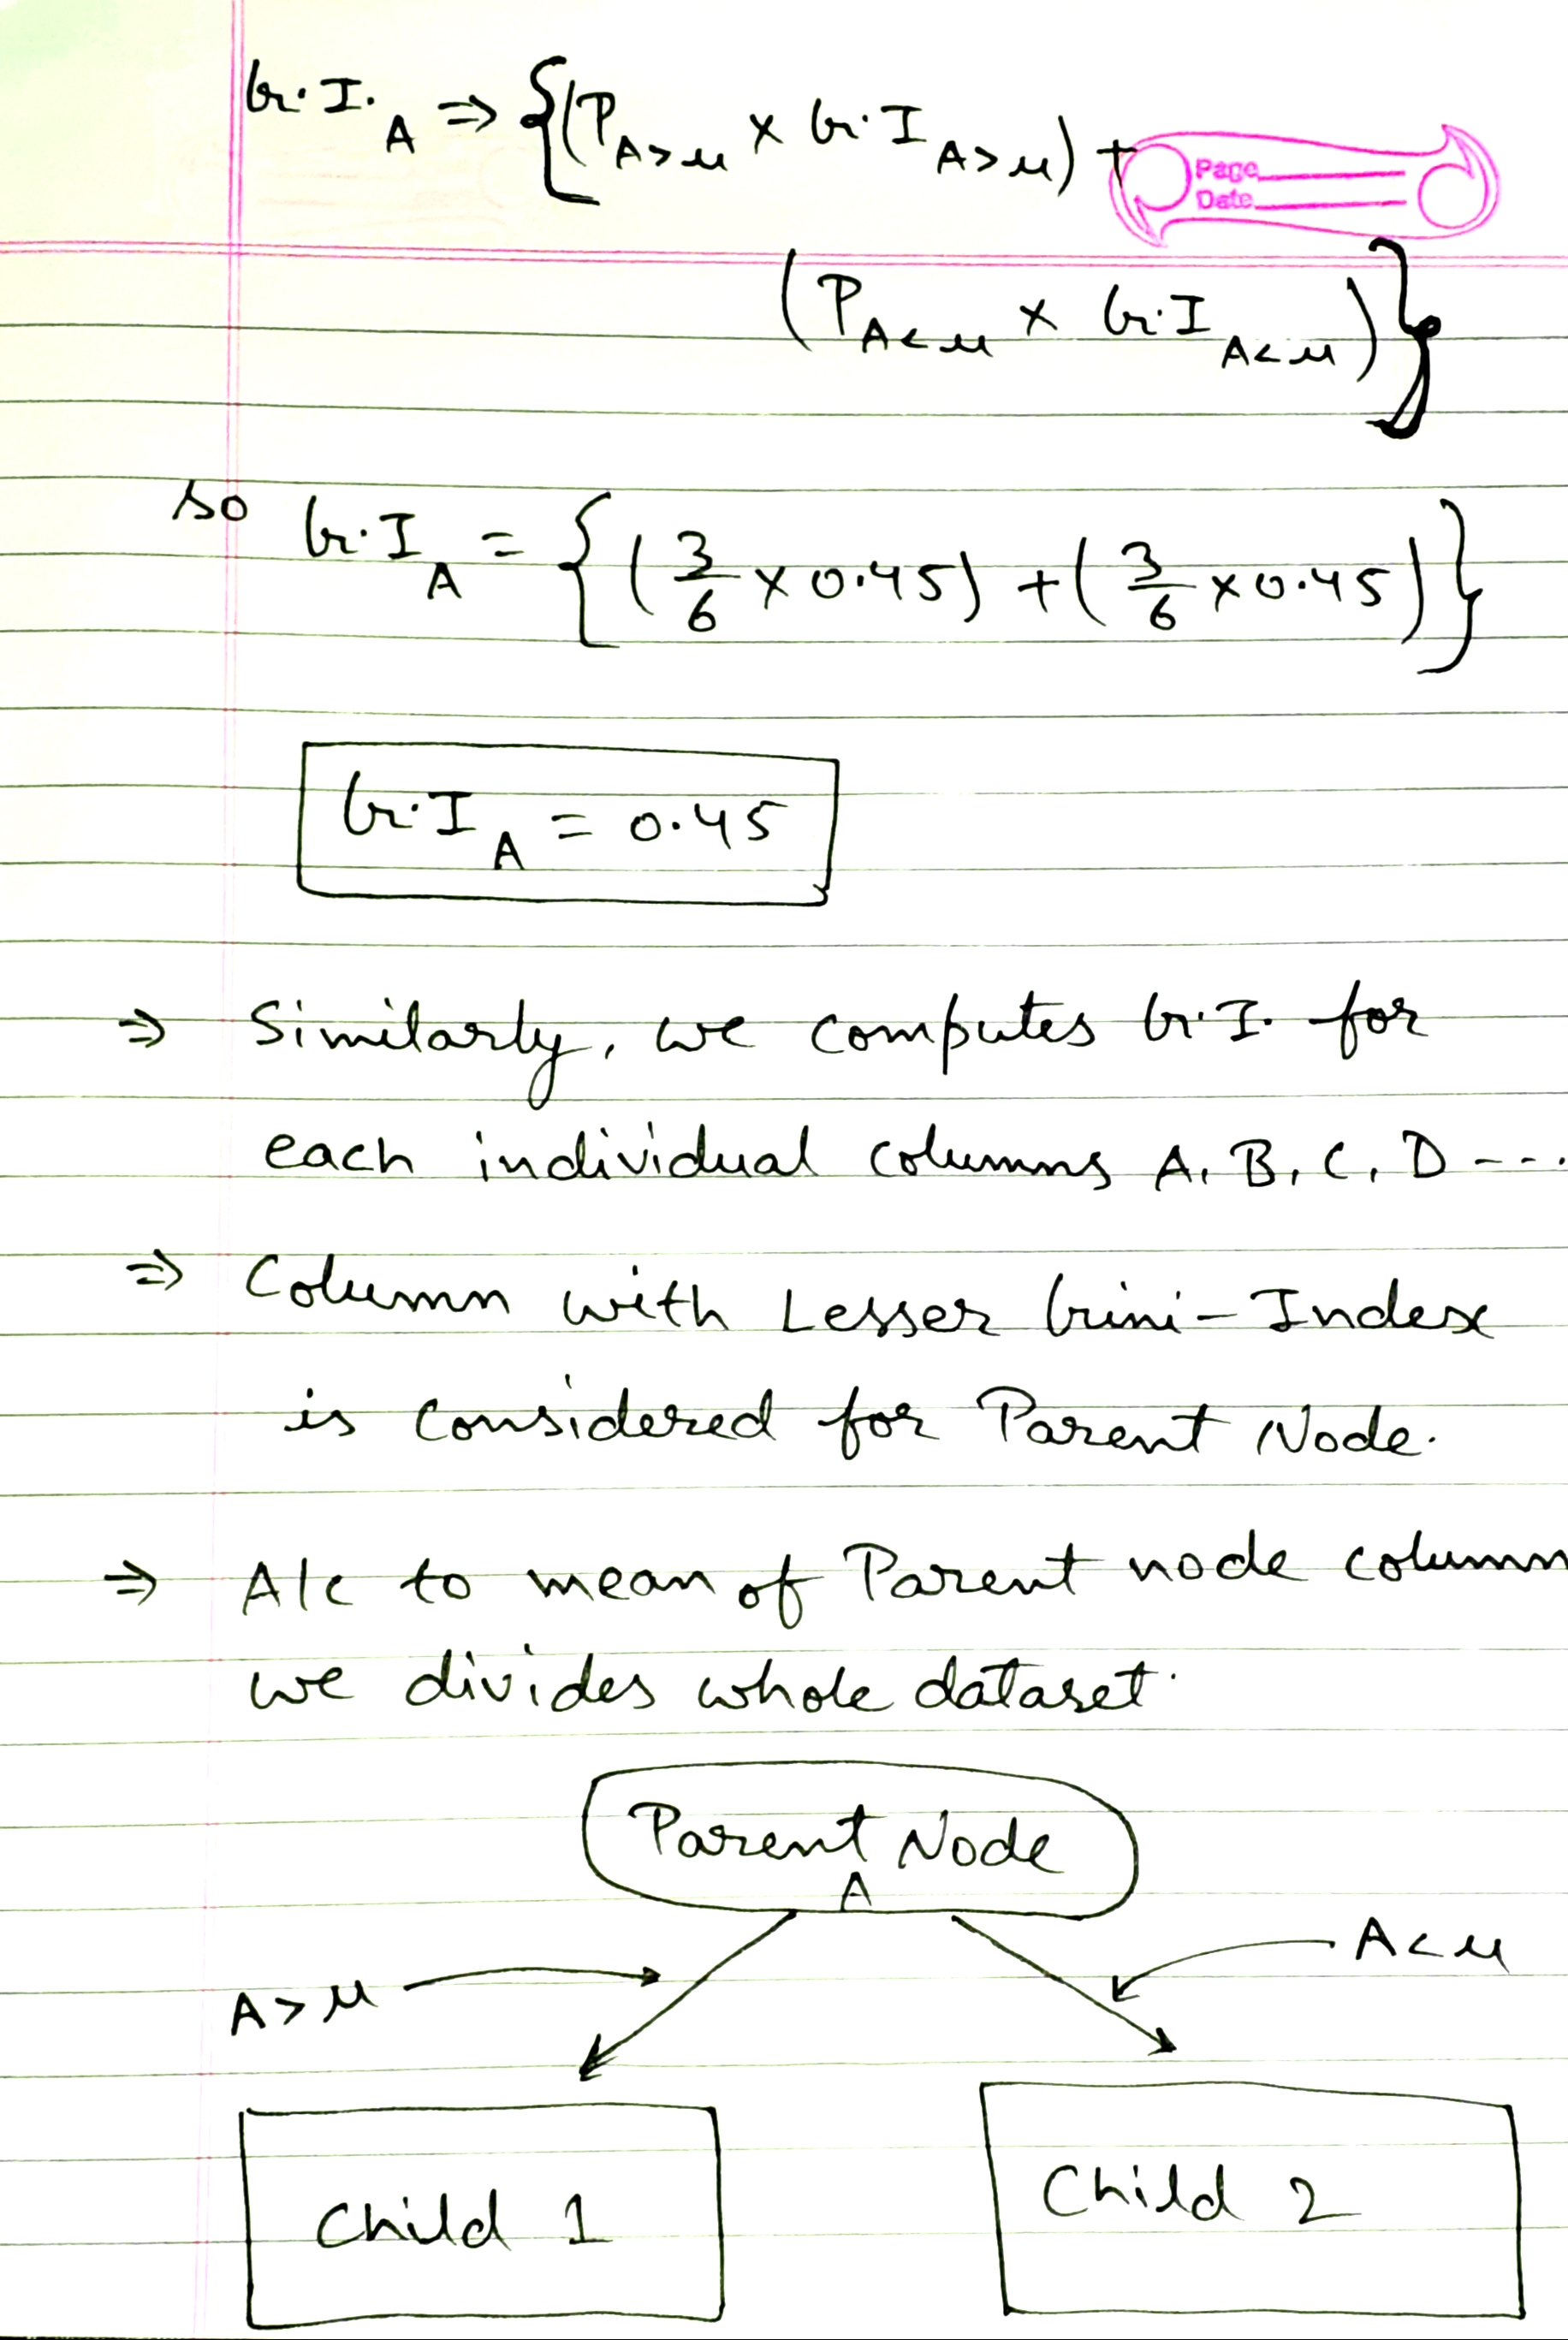 G.I.A ⇒ {(P A>μ × G.I A>μ) +
Page
Date
(P A<μ × G.I A<μ)}
so G.I A = {(3/6 × 0.45) + (3/6 × 0.45)}
G.I A = 0.45
⇒ Similarly, we computes G.I. for
each individual columns A, B, C, D ----
⇒ Column with Lesser Gini-Index
is considered for Parent Node.
⇒ A/c to mean of Parent node column
we divides whole dataset.
Parent Node
A
A>μ
A<μ
Child 1
Child 2